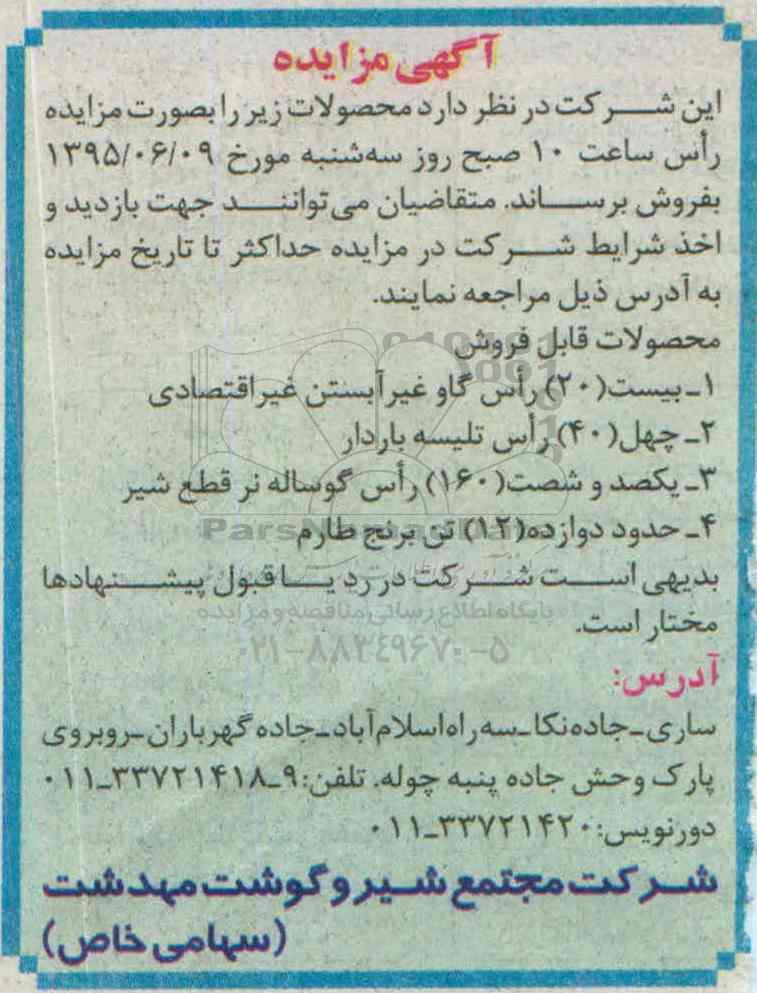 آگهی مزایده
این شرکت در نظر دارد محصولات زیر را بصورت مزایده
رأس ساعت ۱۰ صبح روز سه‌شنبه مورخ ۱۳۹۵/۰۶/۰۹
بفروش برساند. متقاضیان می‌توانند جهت بازدید و
اخذ شرایط شرکت در مزایده حداکثر تا تاریخ مزایده
به آدرس ذیل مراجعه نمایند.
محصولات قابل فروش
۱ـ بیست(۲۰) رأس گاو غیرآبستن غیراقتصادی
۲ـ چهل(۴۰) رأس تلیسه باردار
۳ـ یکصد و شصت(۱۶۰) رأس گوساله نر قطع شیر
۴ـ حدود دوازده(۱۲) تن برنج طارم
ParsNamadData
بدیهی است شرکت در رد یا قبول پیشنهادها
پایگاه اطلاع رسانی مناقصه و مزایده
مختار است.
۰۲۱-۸۸۳۴۹۶۷۰-۵
آدرس:
ساری ـ جاده نکا ـ سه راه اسلام آباد ـ جاده گهرباران ـ روبروی
پارک وحش جاده پنبه چوله. تلفن: ۹ـ۳۳۷۲۱۴۱۸ـ۰۱۱
دورنویس: ۳۳۷۲۱۴۲۰ـ۰۱۱
شرکت مجتمع شیر و گوشت مهدشت
(سهامی خاص)